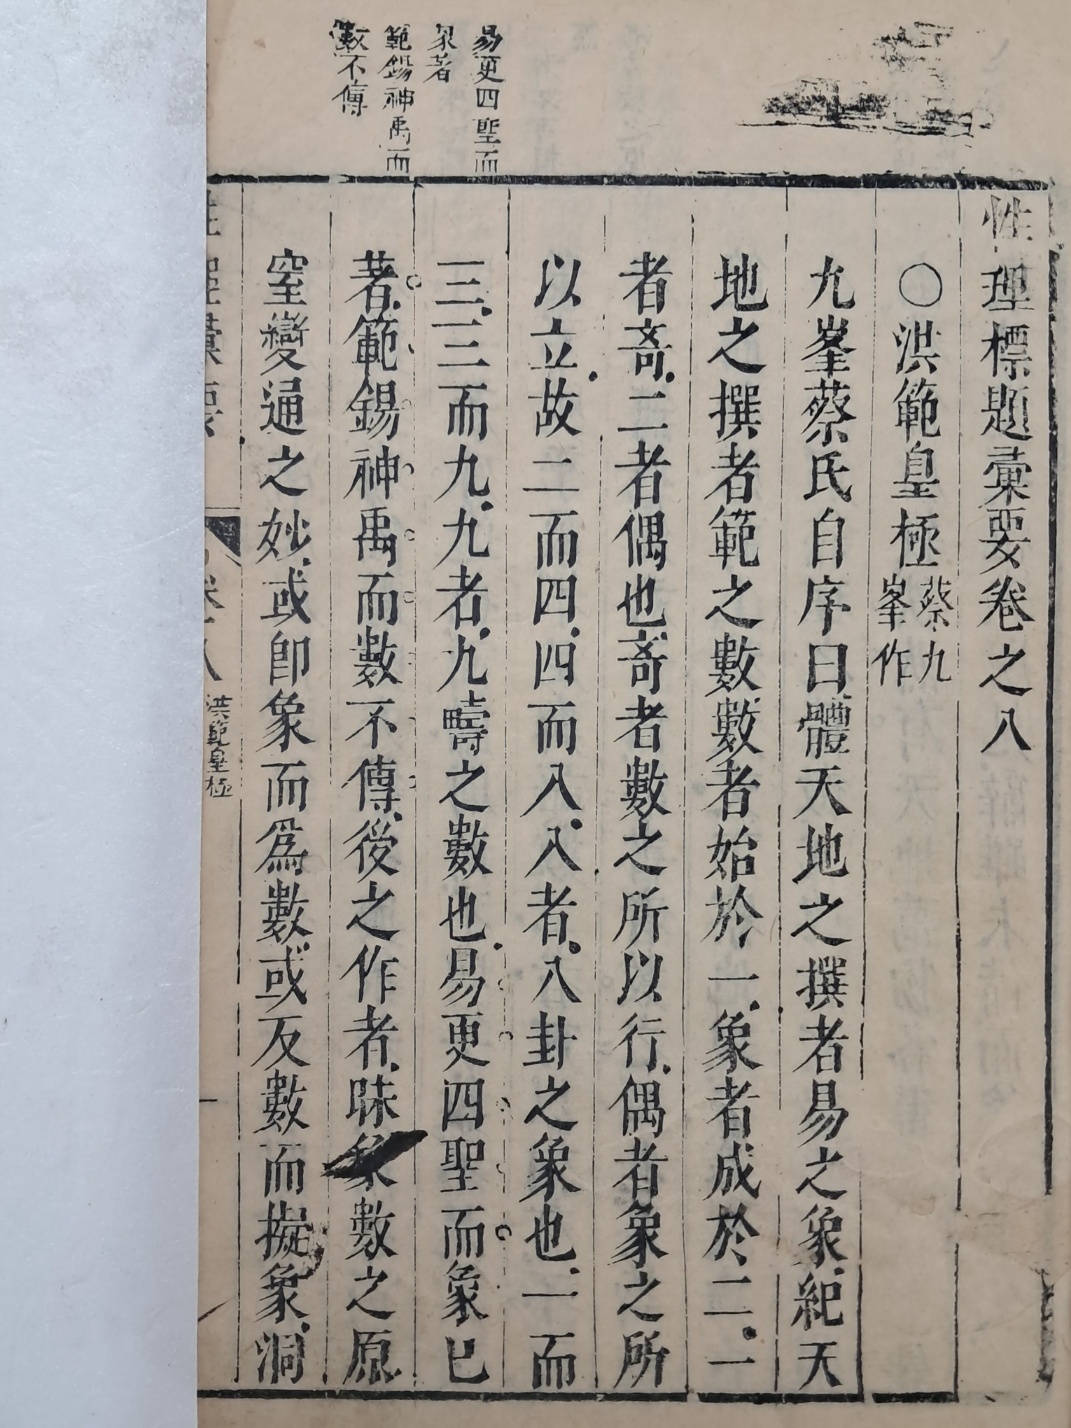 易更四聖而
象著
範錫神禹而
數不傳
性理標題彙要卷之八
○洪範皇極蔡九峯作
九峯蔡氏自序曰體天地之撰者易之象紀天
地之撰者範之數數者始於一象者成於二一
者奇二者偶也奇者數之所以行偶者象之所
以立故二而四四而八八者八卦之象也一而
三三而九九者九疇之數也易更四聖而象已
著範錫神禹而數不傳後之作者昧象數之原
窒變通之妙或卽象而爲數或反數而擬象洞
性理彙要 卷十八 洪範皇極 一